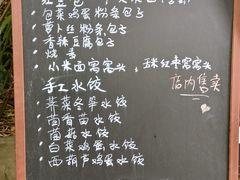 包菜鸡蛋粉条包子
萝卜丝粉条包子
香辣豆腐包子
烧卖
小米面窝窝头,五米红枣窝窝头
手工水饺 店内售卖
荠菜冬笋水饺
茴香苗水饺
茴菇水饺
白菜鸡蛋水饺
西葫芦鸡蛋水饺